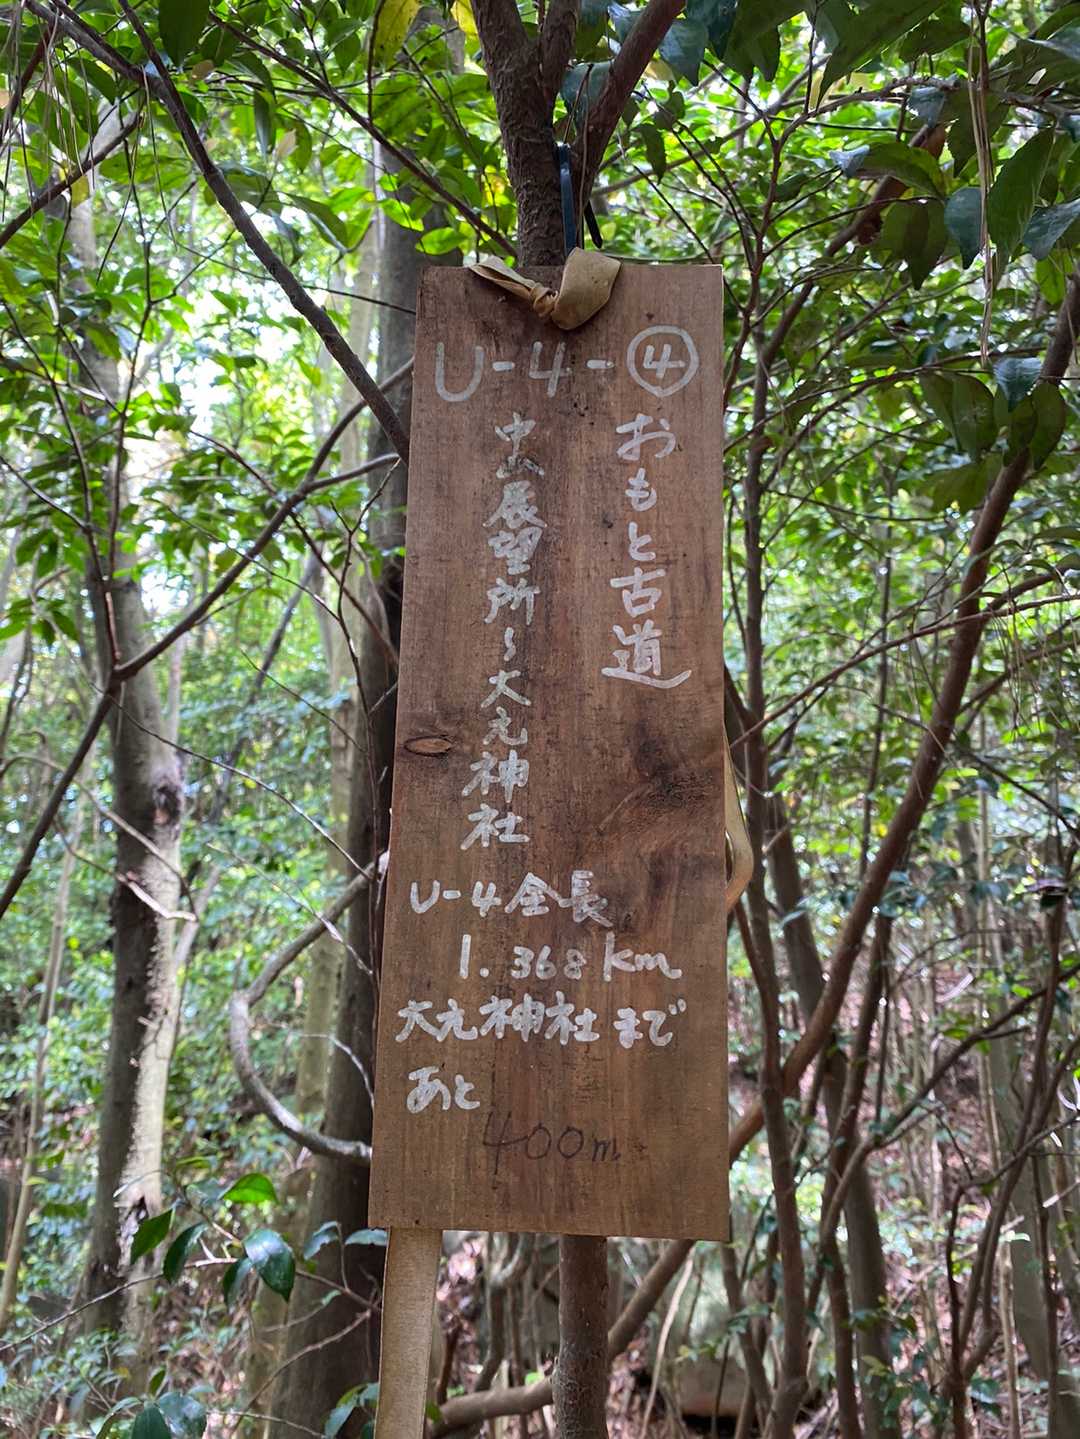 U-4-④
おもと古道
中山展望所〜大元神社
U-4全長
1.368km
大元神社まで
あと
400m